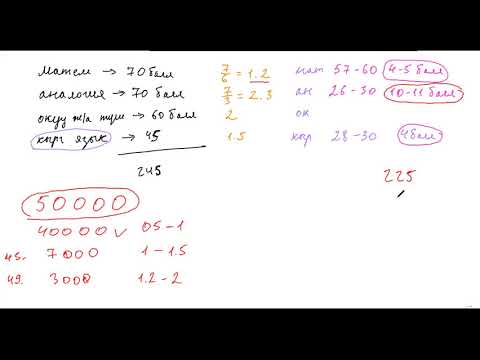 матем → 70 балл 7/6 = 1.2 мат 57-60 4-5 балл
аналогия → 70 балл 7/3 = 2.3 ан 26-30 10-11 балл
окуу ж/а түш → 60 балл 2 ок
кырг язык → 45 1.5 кыр 28-30 4 балл
245
225
50000
40000 05-1
45. 7000 1-1.5
49. 3000 1.2-2